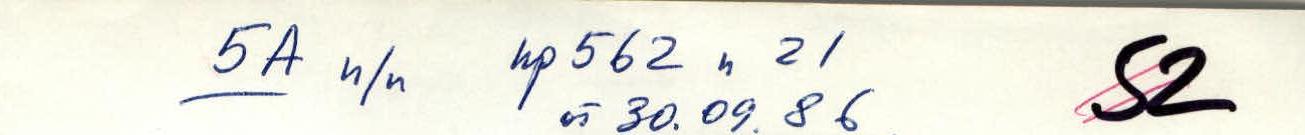 5А п/п пр 562 п 21 52
от 30.09.86